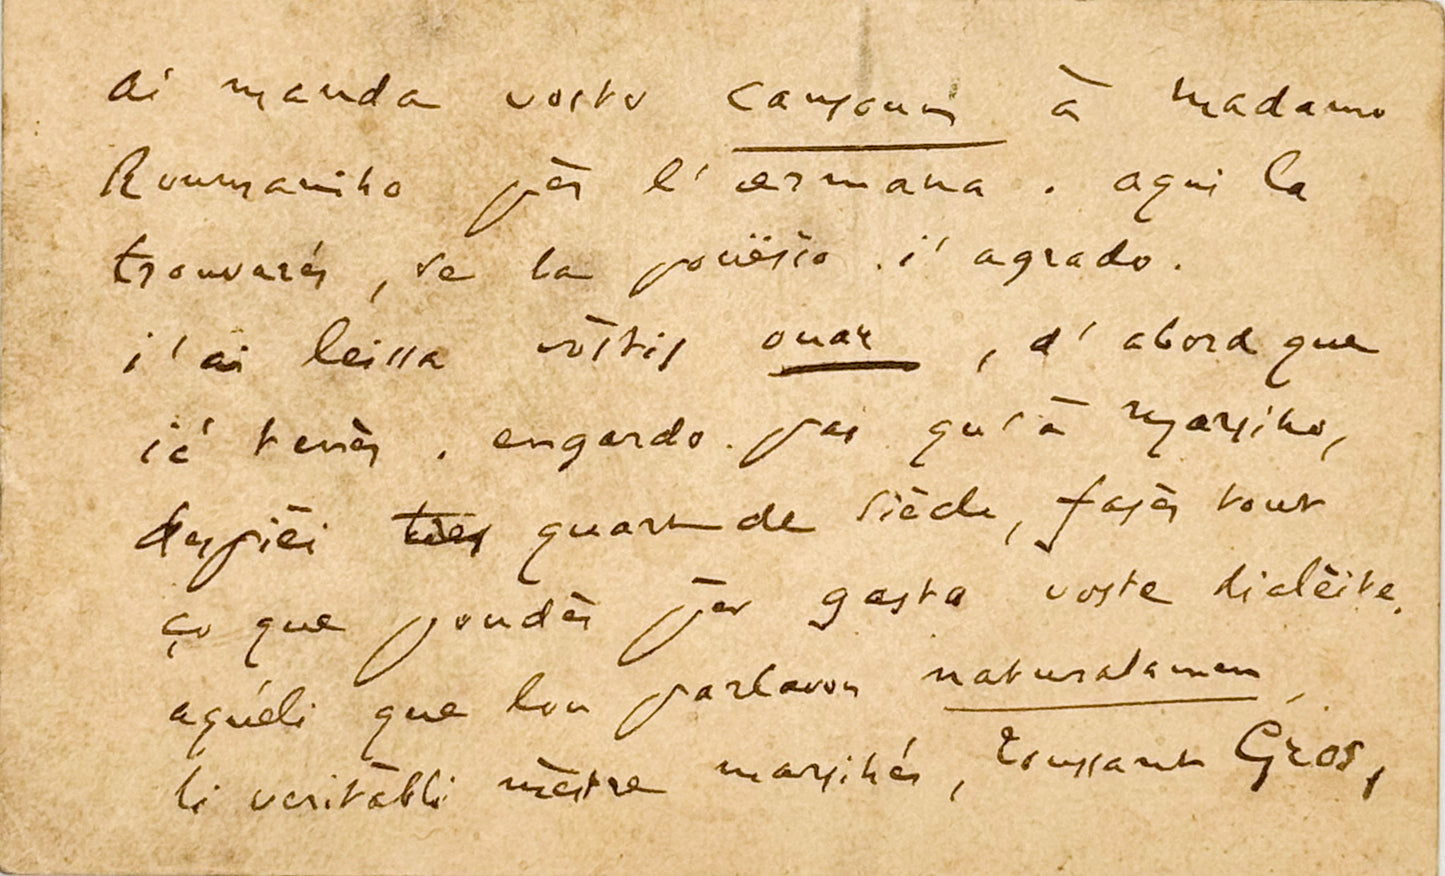 ai manda vosto cansoun à Madamo
Roumaniho pèr l'armana. aqui la
trouvarés, se la pouësio i'agrado.
i'ai leissa vòstis ouar, d'abord que
ié tenès. engardo. pas qu'à Marsiho,
despièi tres quart de siècle, fasès tout
ço que poudès pèr gasta voste dialèite.
aquéli que lou parlavon naturalamen,
li veritàbli mèstre marsihés, Toussant Gros,